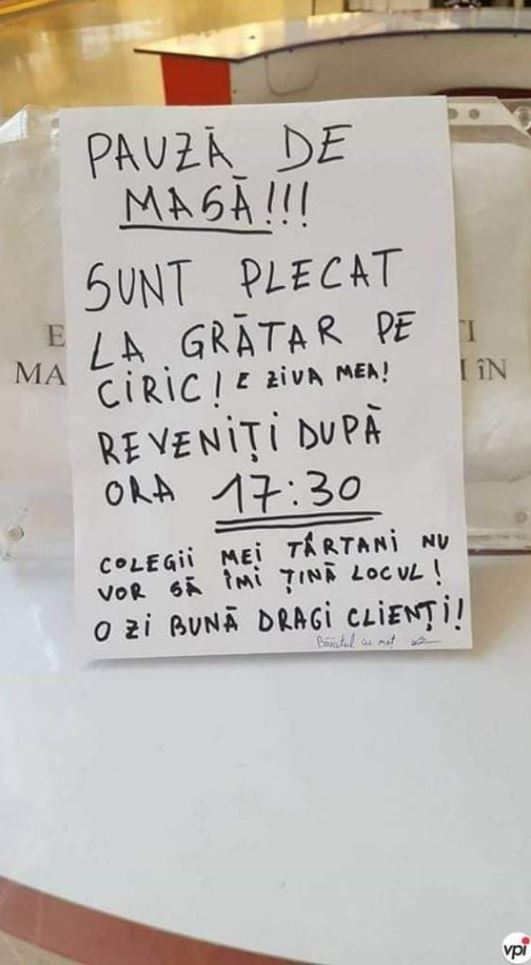 PAUZĂ DE
MASĂ!!!
SUNT PLECAT
LA GRĂTAR PE
CIRIC! E ZIVA MEA!
REVENIȚI DUPĂ
ORA 17:30
COLEGII MEI TÂRTANI NU
VOR SĂ ÎMI ȚINĂ LOCUL!
O ZI BUNĂ DRAGI CLIENȚI!
Băiatul cu moț
E
TI
MA
I ÎN
vpi